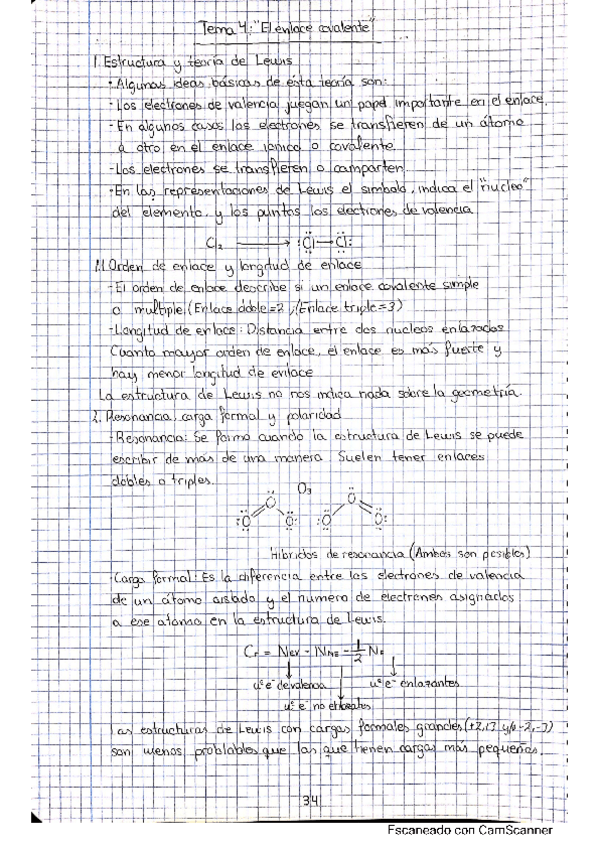 Tema 4: "El enlace covalente"
1. Estructura y teoría de Lewis
- Algunas ideas básicas de esta teoría son:
- Los electrones de valencia juegan un papel importante en el enlace.
- En algunos casos los electrones se transfieren de un átomo
a otro en el enlace ionico o covalente.
- Los electrones se transfieren o comparten.
- En las representaciones de Lewis el simbolo, indica el "nucleo"
del elemento, y los puntos los electrones de valencia
Cl₂ → :Cl—Cl:
1.1 Orden de enlace y longitud de enlace
- El orden de enlace describe si un enlace covalente simple
o multiple. (Enlace doble=2, (Enlace triple=3)
- Longitud de enlace: Distancia entre dos nucleos enlazados
Cuanto mayor orden de enlace, el enlace es más fuerte y
hay menor longitud de enlace
La estructura de Lewis no nos indica nada sobre la geometría.
2. Resonancia, carga formal y polaridad
- Resonancia: Se forma cuando la estructura de Lewis se puede
escribir de más de una manera. Suelen tener enlaces
dobles o triples.
O₃
O O
:O O: :O O:
Hibridos de resonancia (Ambas son posibles)
- Carga formal: Es la diferencia entre los electrones de valencia
de un átomo aislado y el numero de electrones asignados
a ese atomo en la estructura de Lewis.
C_F = N_eV - N_NE - 1/2 N_E
nº e⁻ de valencia nº e⁻ enlazantes
nº e⁻ no enlazantes
Las estructuras de Lewis con cargas formales grandes (+2,+3 y/o -2,-3)
son menos problables que las que tienen cargas más pequeñas.
34
Escaneado con CamScanner